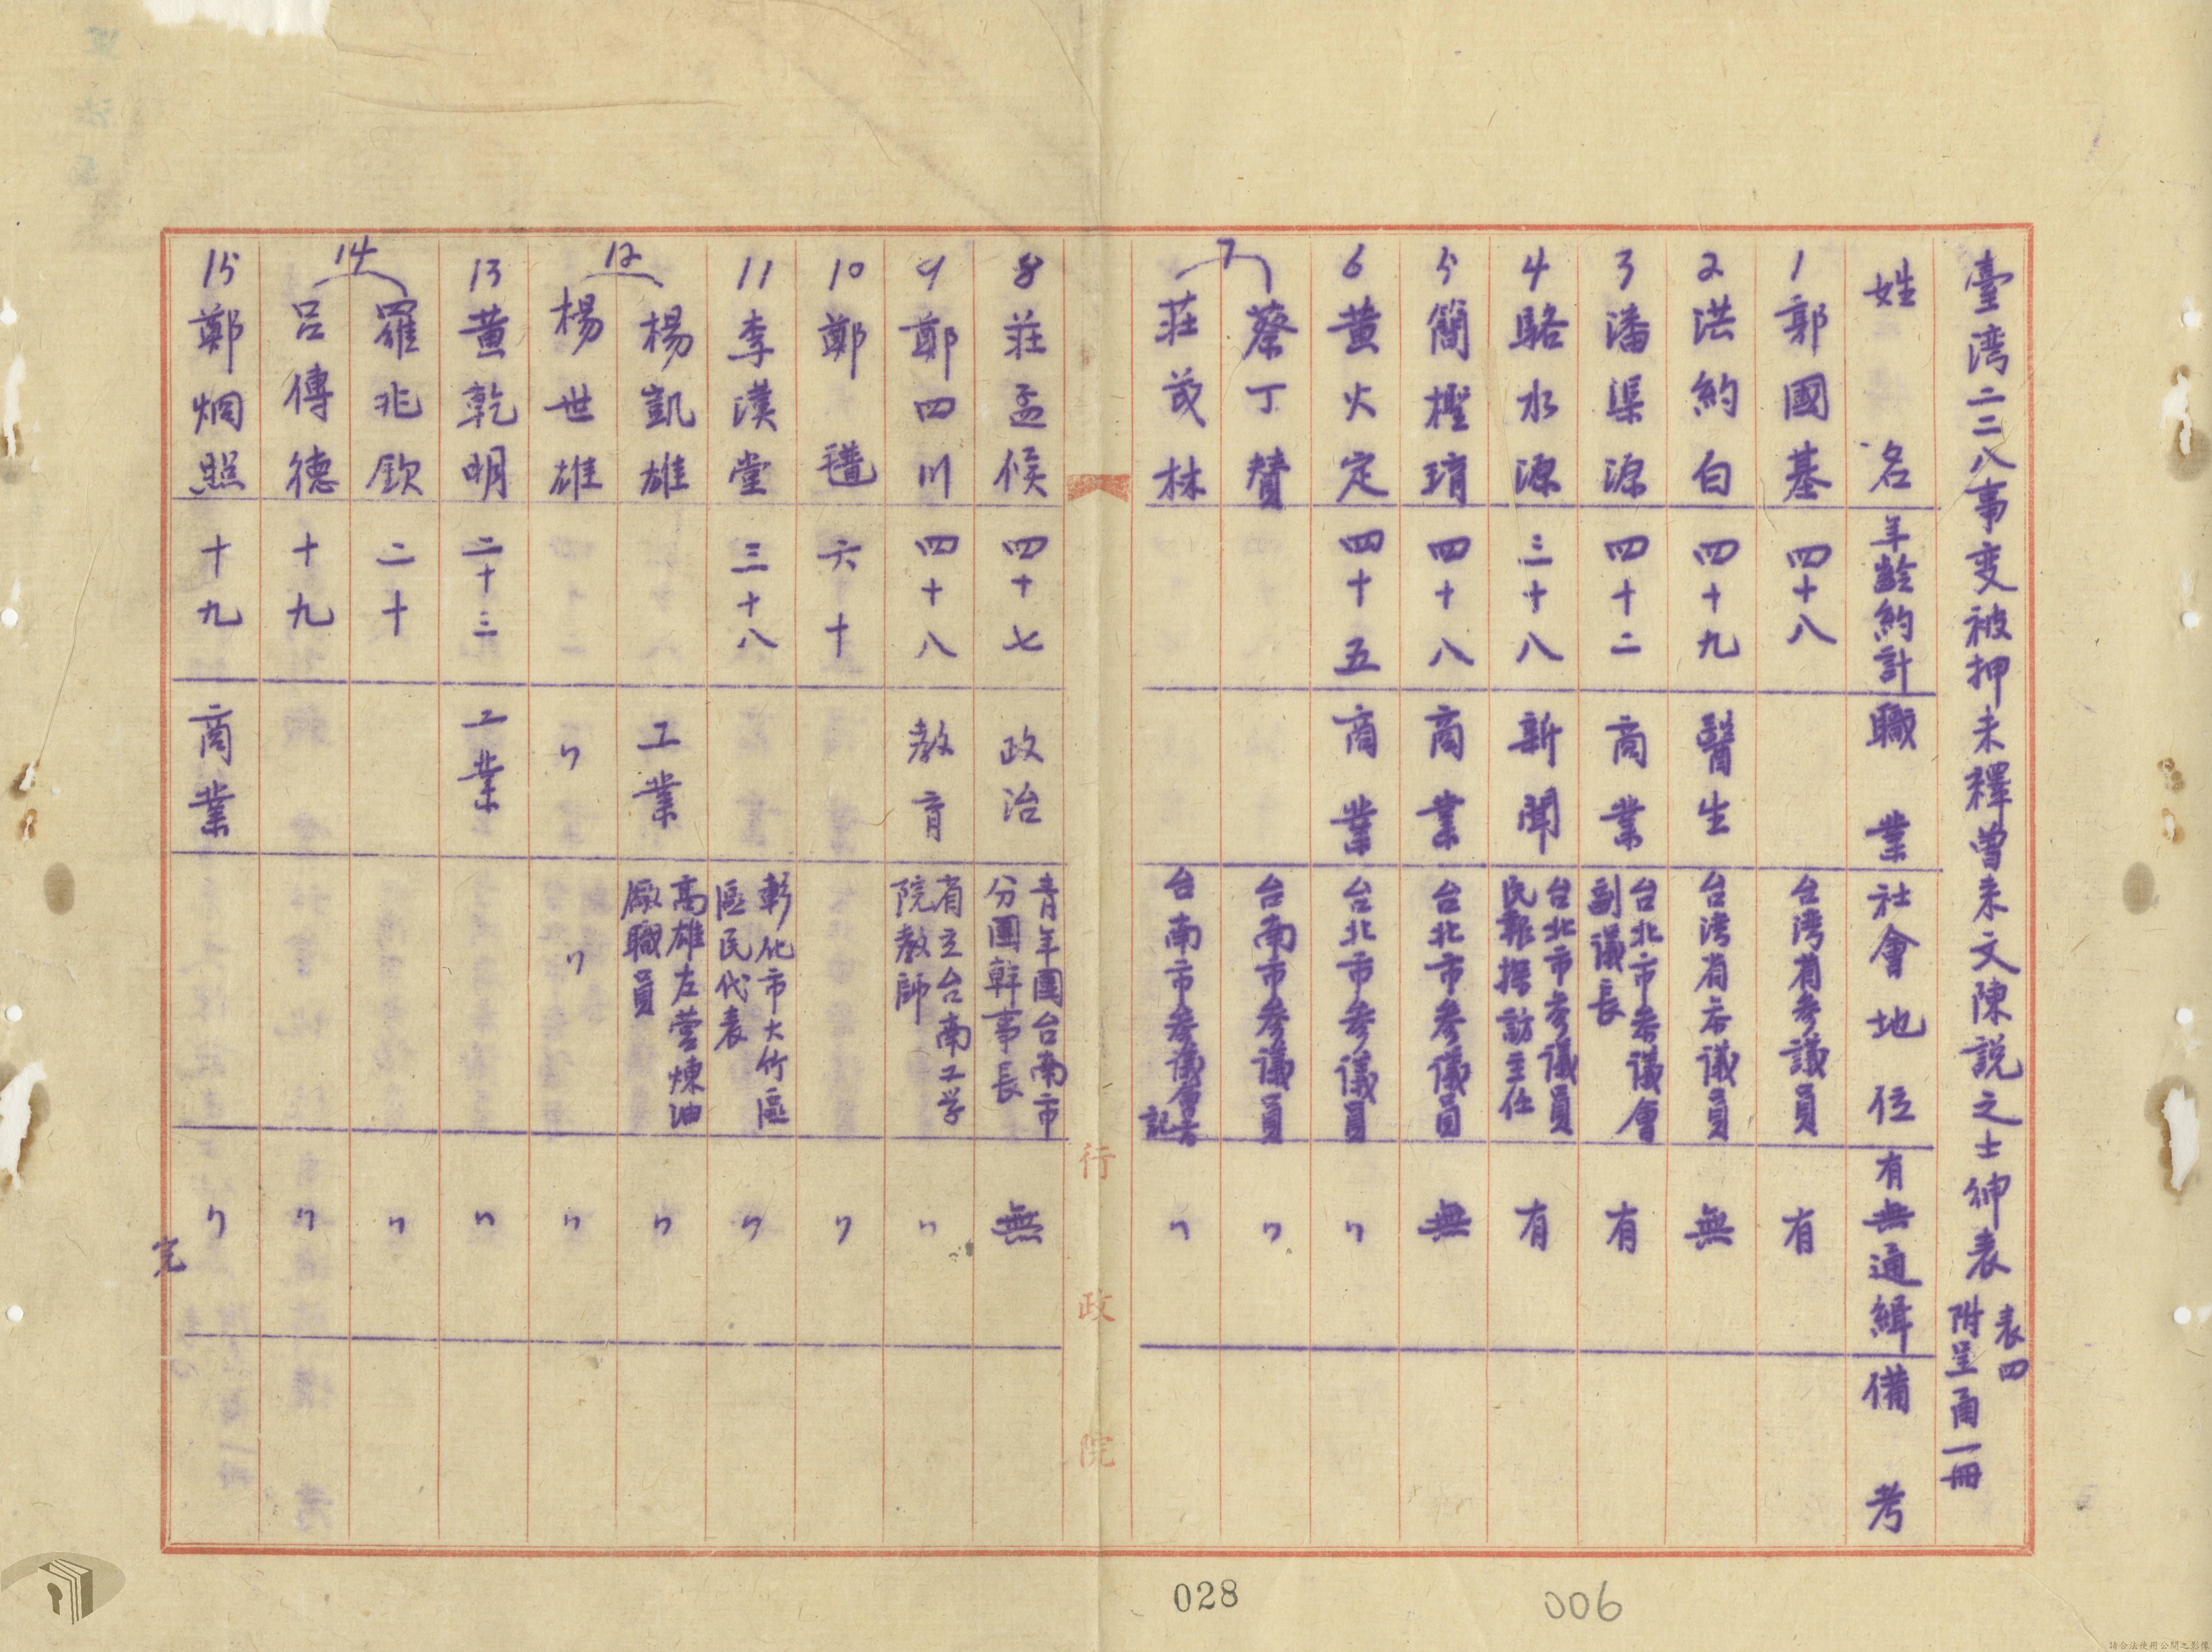 臺湾二二八事变被押未釋曾来文陳説之士紳表 表四
附呈甬一冊
姓名 年齡約計 職業 社會地位 有無通緝 備考
1 郭國基 四十八 台湾省参議員 有
2 洪約白 四十九 醫生 台湾省参議員 無
3 潘渠源 四十二 商業 台北市参議會副議長 有
4 駱水源 三十八 新聞 台北市参議員民報採訪主任 有
5 簡檉堉 四十八 商業 台北市参議員 無
6 黄火定 四十五 商業 台北市参議員 〃
7 蔡丁贊 台南市参議員 〃
莊茂林 台南市参議會書記 〃
8 莊孟候 四十七 政治 青年團台南市分團幹事長 無
9 鄭四川 四十八 教育 省立台南工学院教師 〃
10 鄭 六十 〃
11 李漢堂 三十八 彰化市大竹區區民代表 〃
12 楊凱雄 工業 高雄左营煉油廠職員 〃
楊世雄 〃 〃 〃
13 黄乾明 二十三 工業 〃
14 羅兆欽 二十 〃
呂傳德 十九 〃
15 鄭烱照 十九 商業 〃
完
行政院
028
006
請合法使用公開之影像